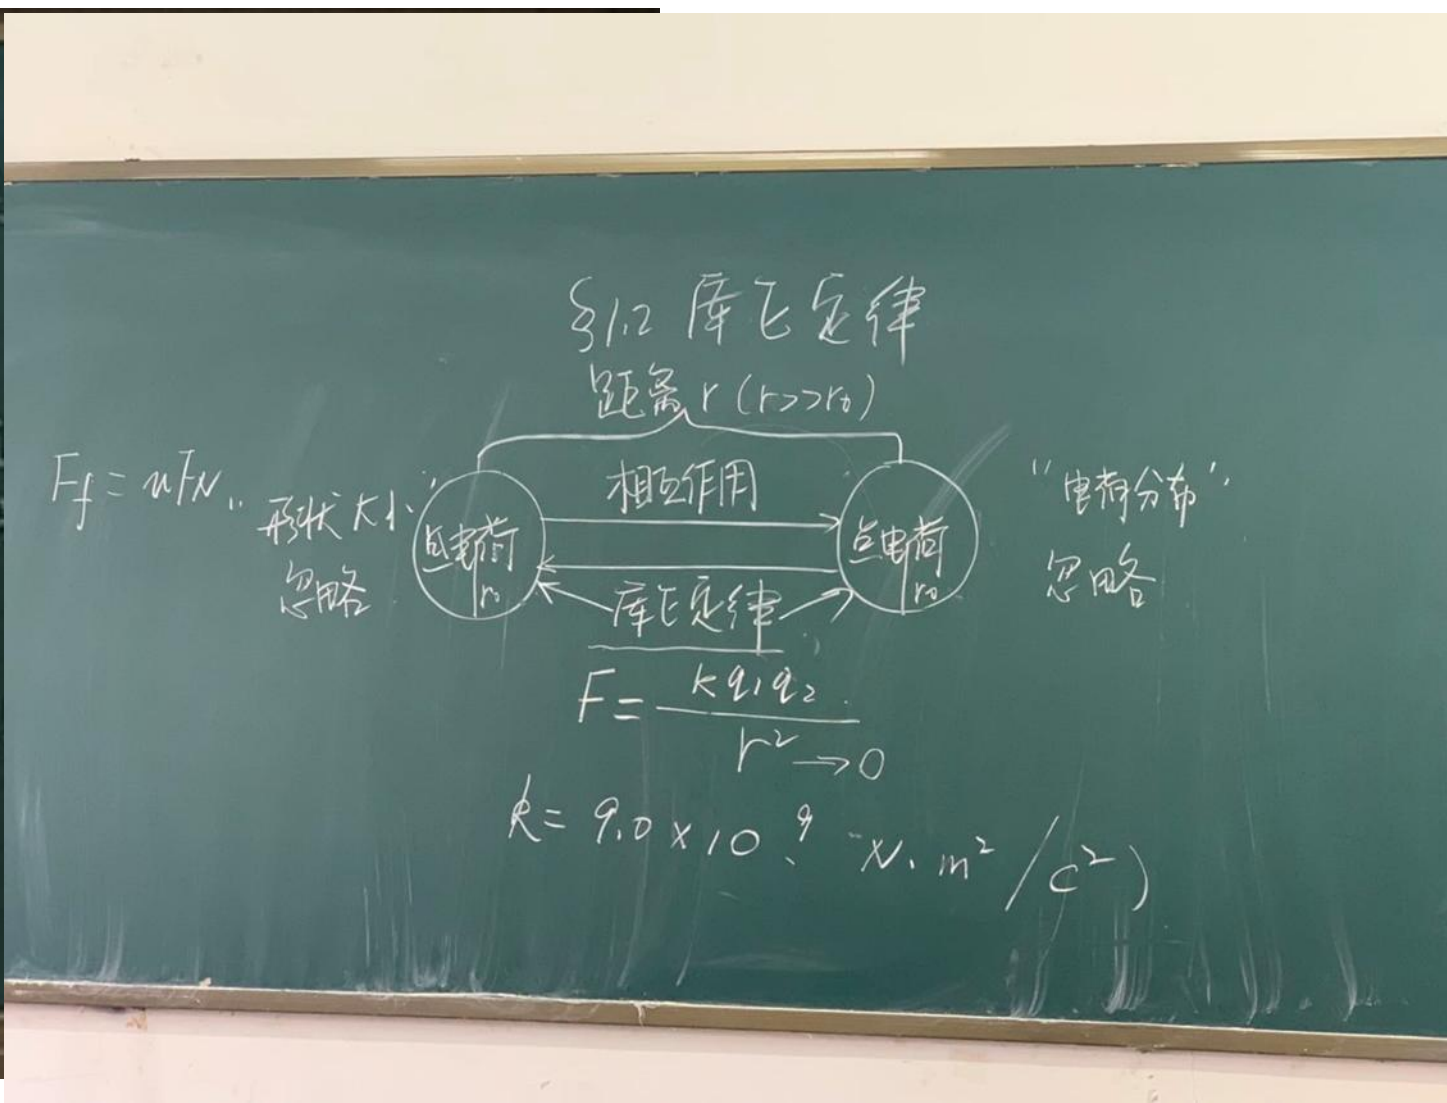 §1.2 库仑定律
距离 r (r>>r₀)
F_f = uF_N
"形状大小"
忽略
点电荷
r₀
相互作用
库仑定律
点电荷
r₀
"电荷分布"
忽略
F = kq₁q₂ / r² → 0
k = 9.0 × 10⁹ N·m²/C²)